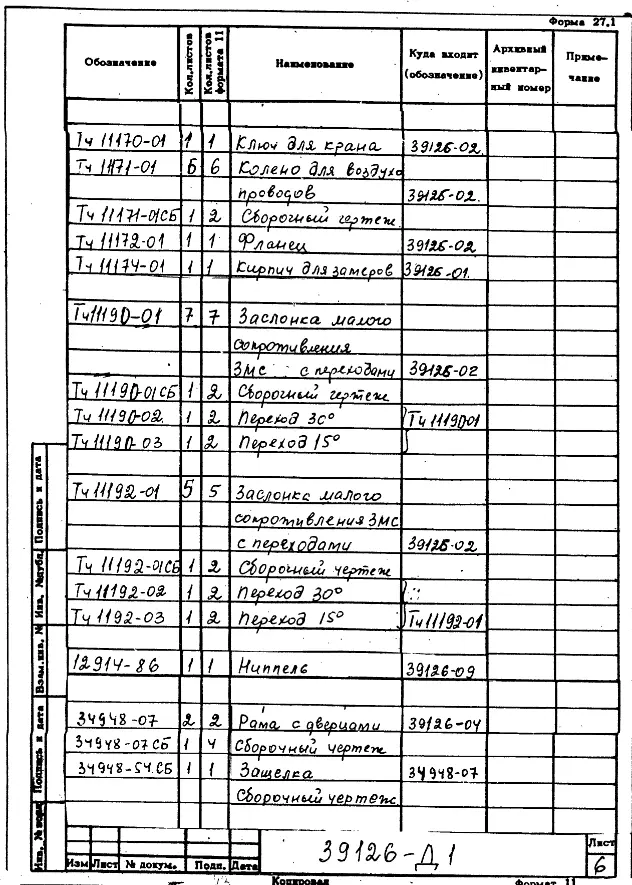 Форма 27.1
Обозначение Кол.листов Кол.листов формата 11 Наименование Куда входит (обозначение) Архивный инвентарный номер Приме-чание
Тч 11170-01 1 1 Ключ для крана 39126-02
Тч 11171-01 6 6 Колено для воздухо
проводов 39126-02.
Тч 11171-01СБ 1 2 Сборочный чертеж.
Тч 11172-01 1 1 Фланец 39126-02
Тч 11174-01 1 1 Кирпич для замеров 39126-01.
Тч 11190-01 7 7 Заслонка малого
сопротивления
ЗМС с переходами 39126-02
Тч 11190-01СБ 1 2 Сборочный чертеж
Тч 11190-02. 1 2 Переход 30° Тч 11190-01
Тч 11190-03 1 2 Переход 15°
Тч 11192-01 5 5 Заслонка малого
сопротивления ЗМС
с переходами 39126-02
Тч 11192-01СБ 1 2 Сборочный чертеж
Тч 11192-02 1 2 Переход 30°
Тч 1192-03 1 2 Переход 15° Тч 11192-01
12914-86 1 1 Ниппель 39126-09
34948-07 2 2 Рама с дверцами 39126-04
34948-07СБ 1 4 Сборочный чертеж
34948-54.СБ 1 1 Защелка 34948-07
Сборочный чертеж
Инв. № подл Подпись и дата Взам.инв. № Инв. №дубл. Подпись и дата
Изм Лист № докум. Подп. Дата
39126-Д1
Лист
6
Копировал Формат 11